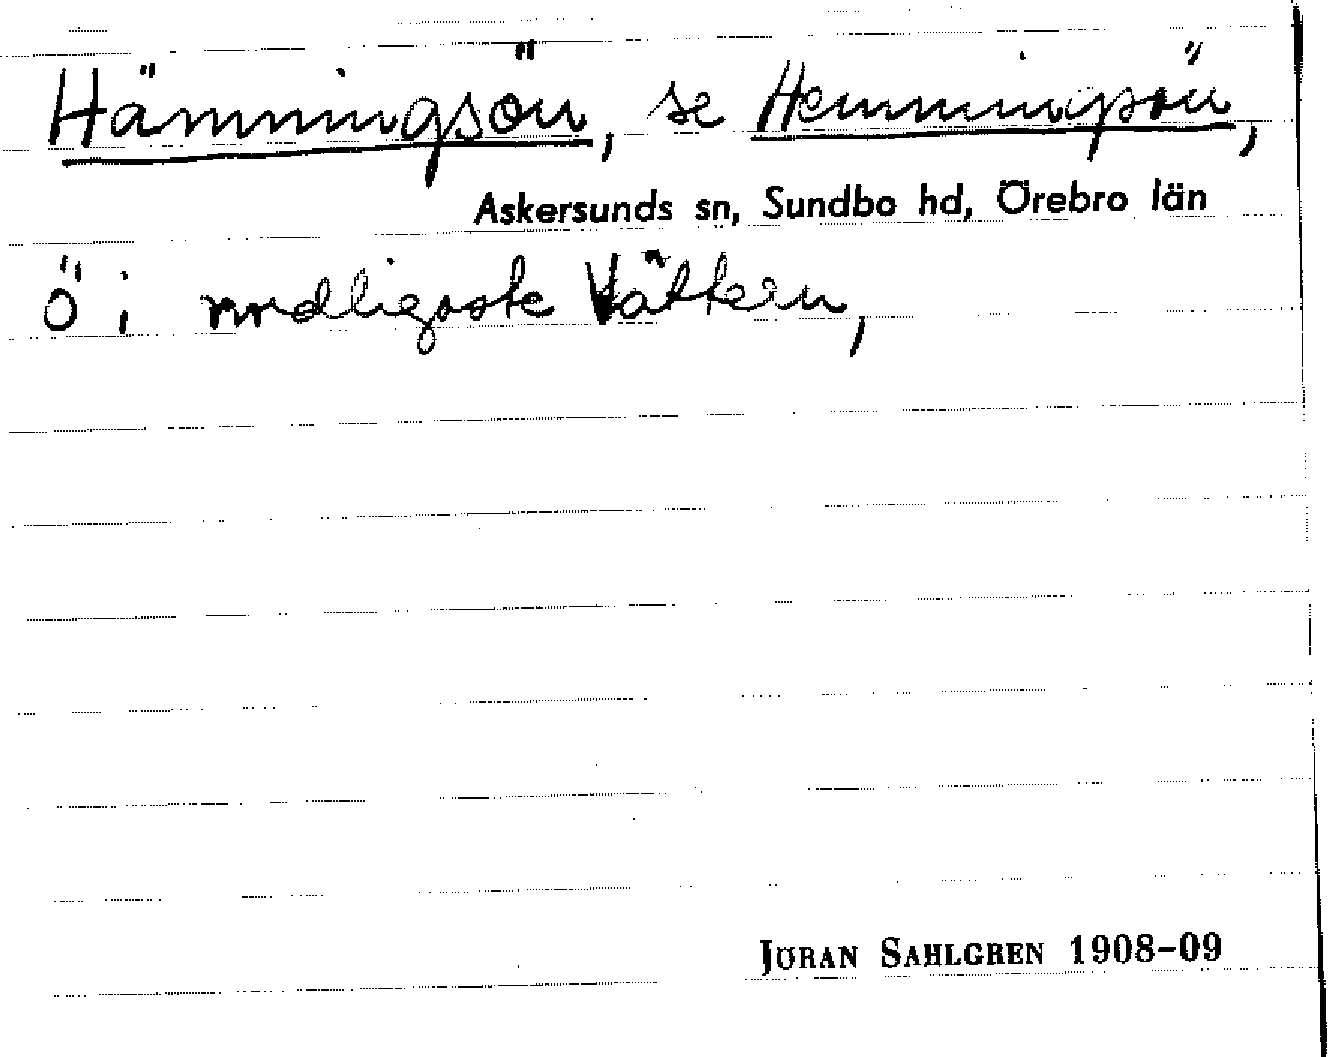 Hämningsön, se Hemningsön,
Askersunds sn, Sundbo hd, Örebro län
Ö i nordligaste Vättern,
JÖRAN SAHLGREN 1908-09